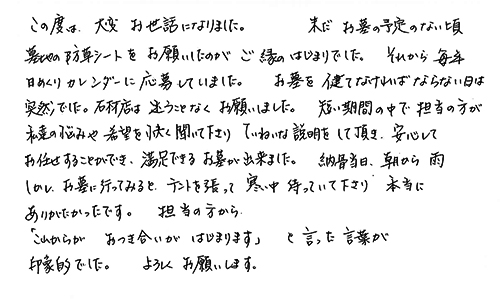 この度は、大変 お世話になりました。 未だ お墓の予定のない頃
墓地の防草シートを お願いしたのが ご縁のはじまりでした。 それから 毎年
日めくりカレンダーに 応募していました。 お墓を 建てなければならない日は
突然でした。石材店は 迷うことなく お願いしました。 短い期間の中で 担当の方が
私達の悩みや 希望を快く聞いて下さり ていねいな説明をして頂き、安心して
お任せすることができ、満足できる お墓が出来ました。 納骨当日、朝から 雨
しかし、お墓に行ってみると、テントを張って 寒い中 待っていて下さり 本当に
ありがたかったです。 担当の方から
「これからが おつき合いが はじまります」 と 言った 言葉が
印象的でした。 よろしく お願いします。